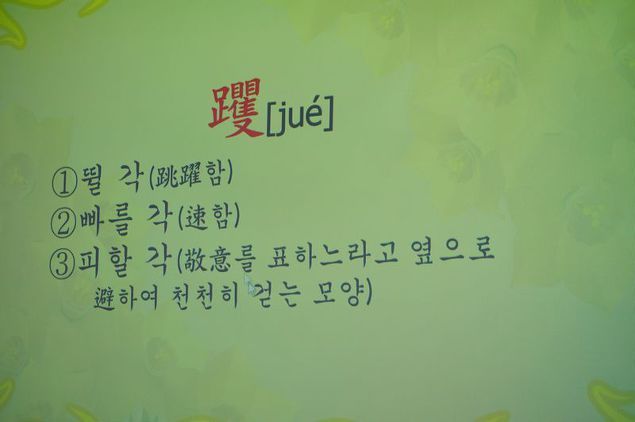 躩[jué]
①뛸 각(跳躍함)
②빠를 각(速함)
③피할 각(敬意를 표하느라고 옆으로
避하여 천천히 걷는 모양)